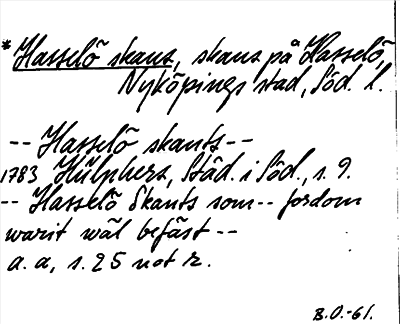 *Hasselö skans, skans på Hasselö,
Nyköpings stad, Söd. l.
-- Hasselö skants --
1783 Hülphers, Städ. i Söd., s. 9.
-- Hasselö Skants som -- fordom
warit wäl befäst --
a. a., s. 25 not r.
B.O.-61.